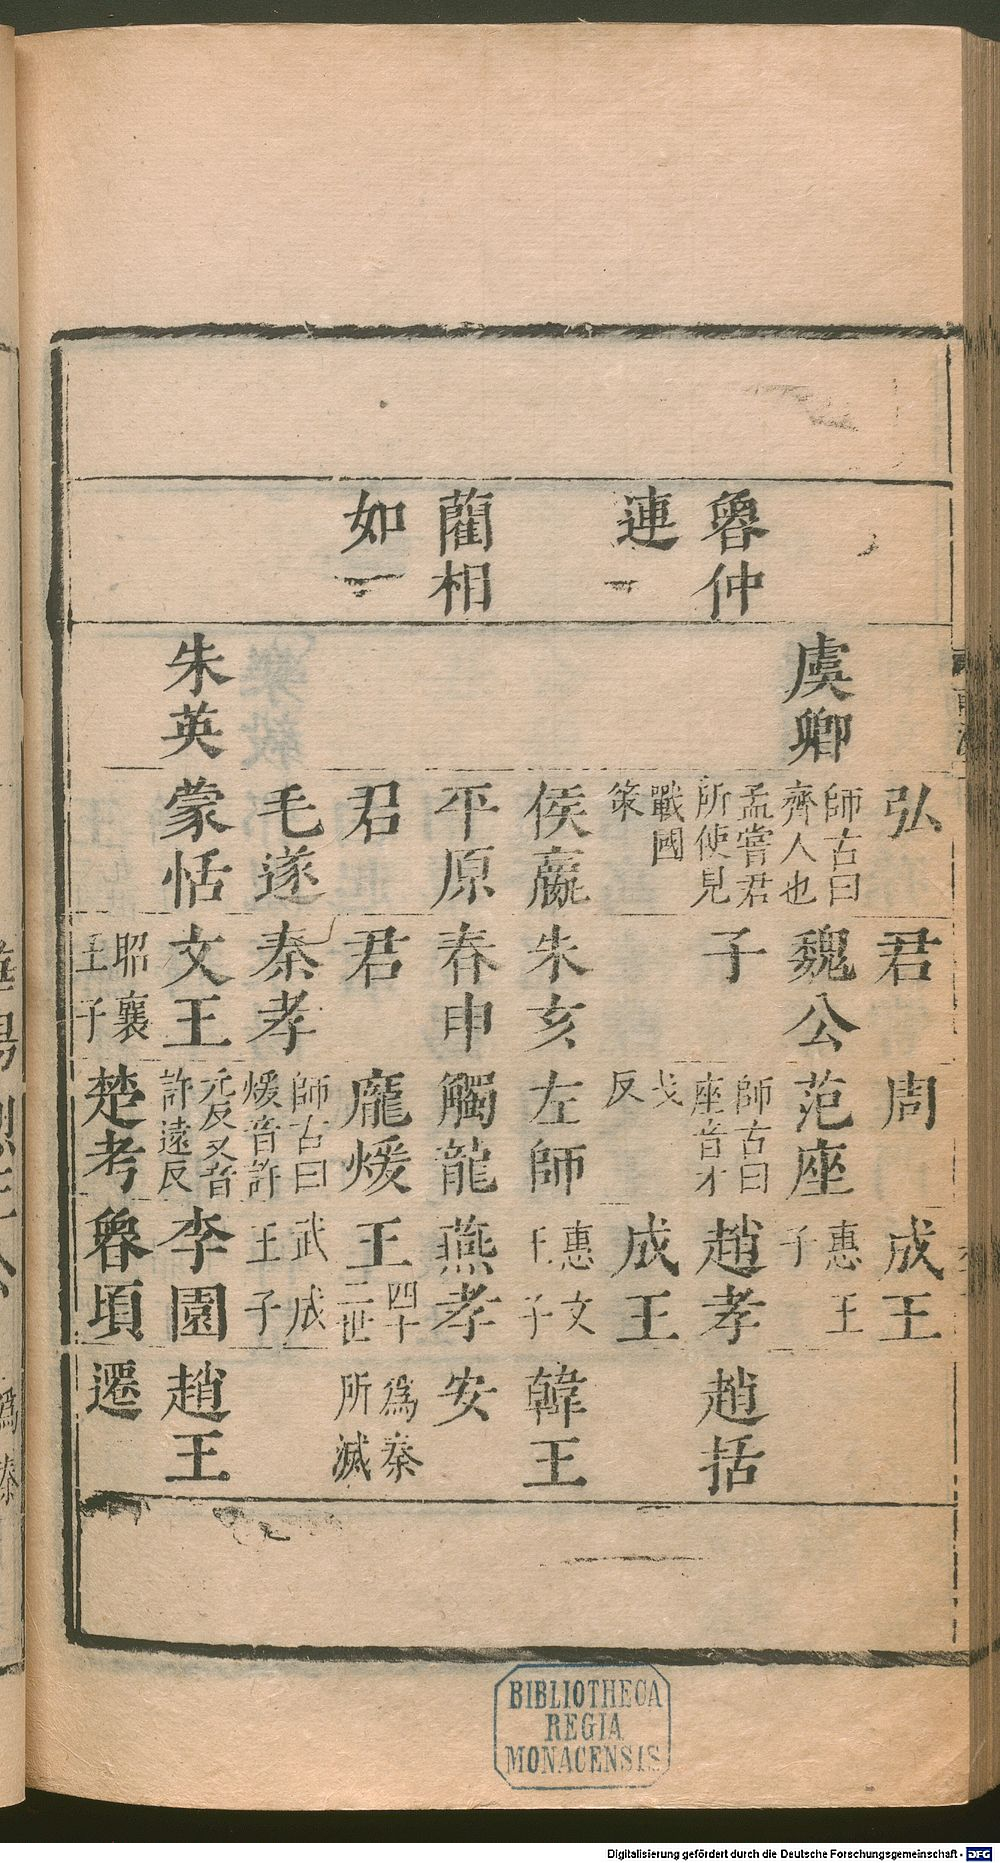 弘 君 周 成王
虞卿 師古曰齊人也 魏公 范座 惠王子
魯仲 孟嘗君所使見 子 師古曰座音才 趙孝 趙括
連 戰國策 戈反 成王
侯嬴 朱亥 左師 惠文王子 韓王
藺相 平原 春申 觸龍 燕孝 安
如 君 君 龐煖 王 四十二世 爲秦所滅
毛遂 秦孝 師古曰煖音許 武成王子
朱英 蒙恬 文王 元反又音許遠反 李園 趙王
昭襄王子 楚考 魯頃 遷
BIBLIOTHECA
REGIA
MONACENSIS
Digitalisierung gefördert durch die Deutsche Forschungsgemeinschaft - DFG